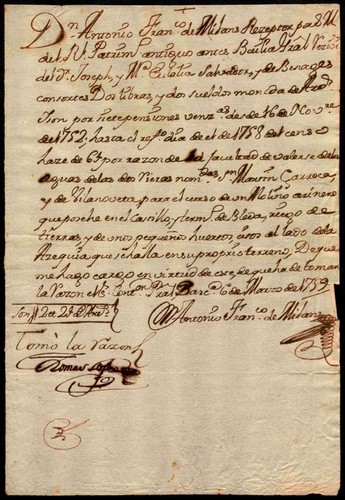 Dn Antonio Franco de Milans Rezeptor por S.M.
del Rl Patrimo antiguo antes Bailia Gral Rezivi
del Dr Joseph, y Ma Salvador, y de Benages
consortes Dos libras, y dos sueldos moneda de
son por siete pensiones venzas desde 16 de Novre
de 1752, hasta el dia de 1758 del censo
haze de 6s por razon de la facultad de valerse de las
aguas de las dos Rieras nomdas Sn Martin Carroca
y de Vilanoveta para el curso de un Molino arinero
que poshe en el Castillo, y termo de Bleda, riego de
tierras, y de unos pequeños huertos, al lado de la
Azequia que se halla en su proprio terreno. De que
me hago cargo en virtud de este de que ha de tomar
la Razon el Sr Conton Pral Barcna 6 de Marzo de 1759
Son 2 2
Antonio Franco de Milans
Tomò la Razon